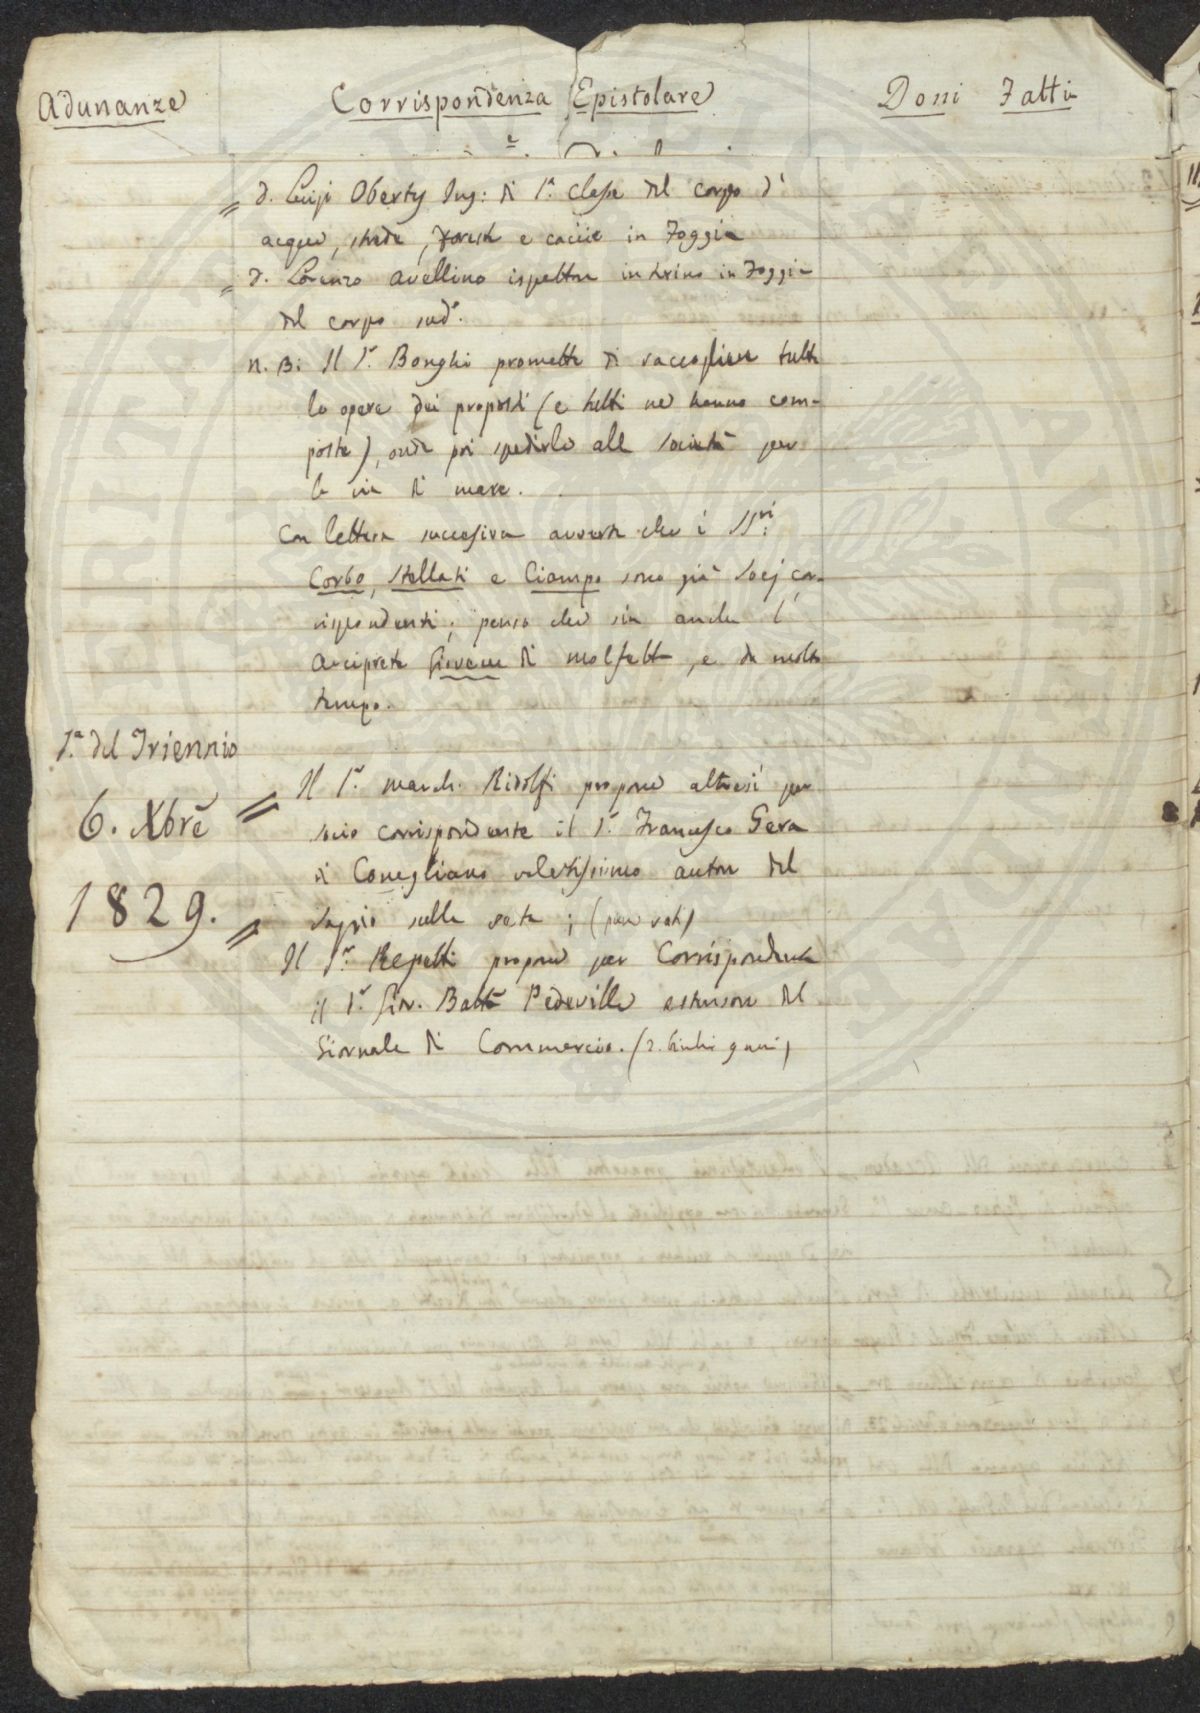 Adunanze
Corrispondenza Epistolare
Doni Fatti
= D. Luigi Oberty Ing: di 1ª Classe del corpo d'
acque, strade, foreste e caccie in Foggia
= D. Lorenzo Avellino ispettore interino in Foggia
del corpo sudº.
N. B: Il Sr. Bonghi promette di raccogliere tutte
le opere dei proposti (e tutti ne hanno com-
poste), onde poi spedirle alla Società per
la via di mare.
Con lettera successiva avverte che i SSri:
Corbo, Stellati e Ciampo sono già Socj cor-
rispondenti; penso che sia anche l'
Arciprete Giovene di Molfetta, e da molto
tempo.
1ª del Triennio
6. Xbre
1829.
= Il Sr. March. Ridolfi propone altresì per
socio corrispondente il Sr. Francesco Gera
di Conegliano valentissimo autore del
Saggio sulla seta;
= Il Sr. Repetti propone per Corrispondente
il Sr. Gio. Batta Pedevilla estensore del
Giornale di Commercio.